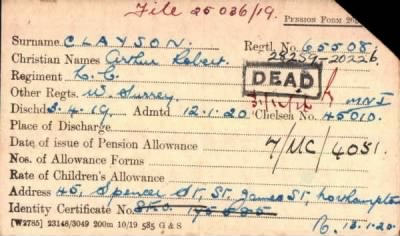 File 25036/19. PENSION FORM
Surname CLAYSON. Regtl. No. 65508.
Christian Names Arthur Robert. 28259-20226
Regiment L.C. DEAD
Other Regts. W. Surrey
Dischd 3.4.19 Admtd 12.1.20 Chelsea No. 45010.
Place of Discharge
Date of issue of Pension Allowance 7/MC/4051.
Nos. of Allowance Forms
Rate of Children's Allowance
Address 45, Spencer St, St. James St, Northampton
Identity Certificate No. 13.1.20.
[W2785] 23148/3049 200m 10/19 585 G & S